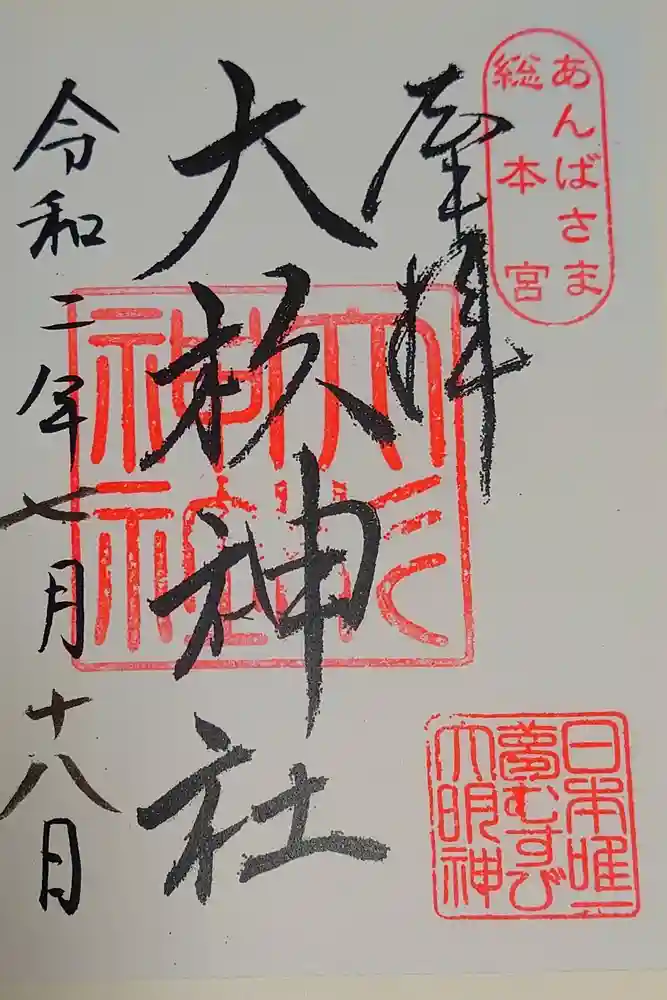 あんばさま
総本宮
奉拝
大杦神社
令和二年七月十八日
大杉
神社
日本唯一
夢むすび
大明神